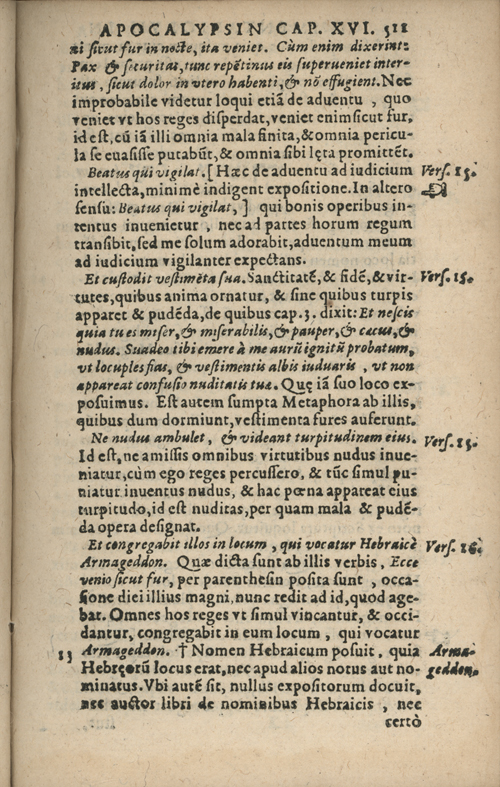 APOCALYPSIN CAP. XVI. 511
ni ſicut fur in nocte, ita veniet. Cùm enim dixerint:
Pax & ſecuritas, tunc repẽtinus eis ſuperueniet inter-
itus, ſicut dolor in vtero habenti, & nõ effugient. Nec
improbabile videtur loqui etiã de aduentu , quo
veniet vt hos reges diſperdat, veniet enim ſicut fur,
id eſt, cũ iã illi omnia mala finita, & omnia pericu-
la ſe euaſiſſe putabũt, & omnia ſibi lęta promittẽt.
Beatus qui vigilat. [ Hæc de aduentu ad iudicium Verſ. 15.
intellecta, minimè indigent expoſitione. In altero
ſenſu: Beatus qui vigilat, ] qui bonis operibus in-
tentus inuenietur , nec ad partes horum regum
tranſibit, ſed me ſolum adorabit, aduentum meum
ad iudicium vigilanter expectans.
Et cuſtodit veſtimẽta ſua. Sanctitatẽ, & fidẽ, & vir- Verſ. 15.
tutes, quibus anima ornatur, & ſine quibus turpis
apparet & pudẽda, de quibus cap. 3. dixit: Et neſcis
quia tu es miſer, & miſerabilis, & pauper, & cæcus, &
nudus. Suadeo tibi emere à me aurũ ignitũ probatum,
vt locuples fias, & veſtimentis albis induaris , vt non
appareat confuſio nuditatis tuæ. Quę iã ſuo loco ex-
poſuimus. Eſt autem ſumpta Metaphora ab illis,
quibus dum dormiunt, veſtimenta fures auferunt.
Ne nudus ambulet, & videant turpitudinem eius. Verſ. 15.
Id eſt, ne amiſſis omnibus virtutibus nudus inue-
niatur, cùm ego reges percuſſero, & tũc ſimul pu-
niatur inuentus nudus, & hac pœna appareat eius
turpitudo, id eſt nuditas, per quam mala & pudẽ-
da opera deſignat.
Et congregabit illos in locum , qui vocatur Hebraicè Verſ. 16.
Armageddon. Quæ dicta ſunt ab illis verbis, Ecce
venio ſicut fur, per parentheſin poſita ſunt , occa-
ſione diei illius magni, nunc redit ad id, quod age-
bat. Omnes hos reges vt ſimul vincantur, & occi-
dantur, congregabit in eum locum , qui vocatur
13 Armageddon. † Nomen Hebraicum poſuit, quia Arma-
Hebręorũ locus erat, nec apud alios notus aut no- geddon.
minatus. Vbi autẽ ſit, nullus expoſitorum docuit,
nec auctor libri de nominibus Hebraicis , nec
certò